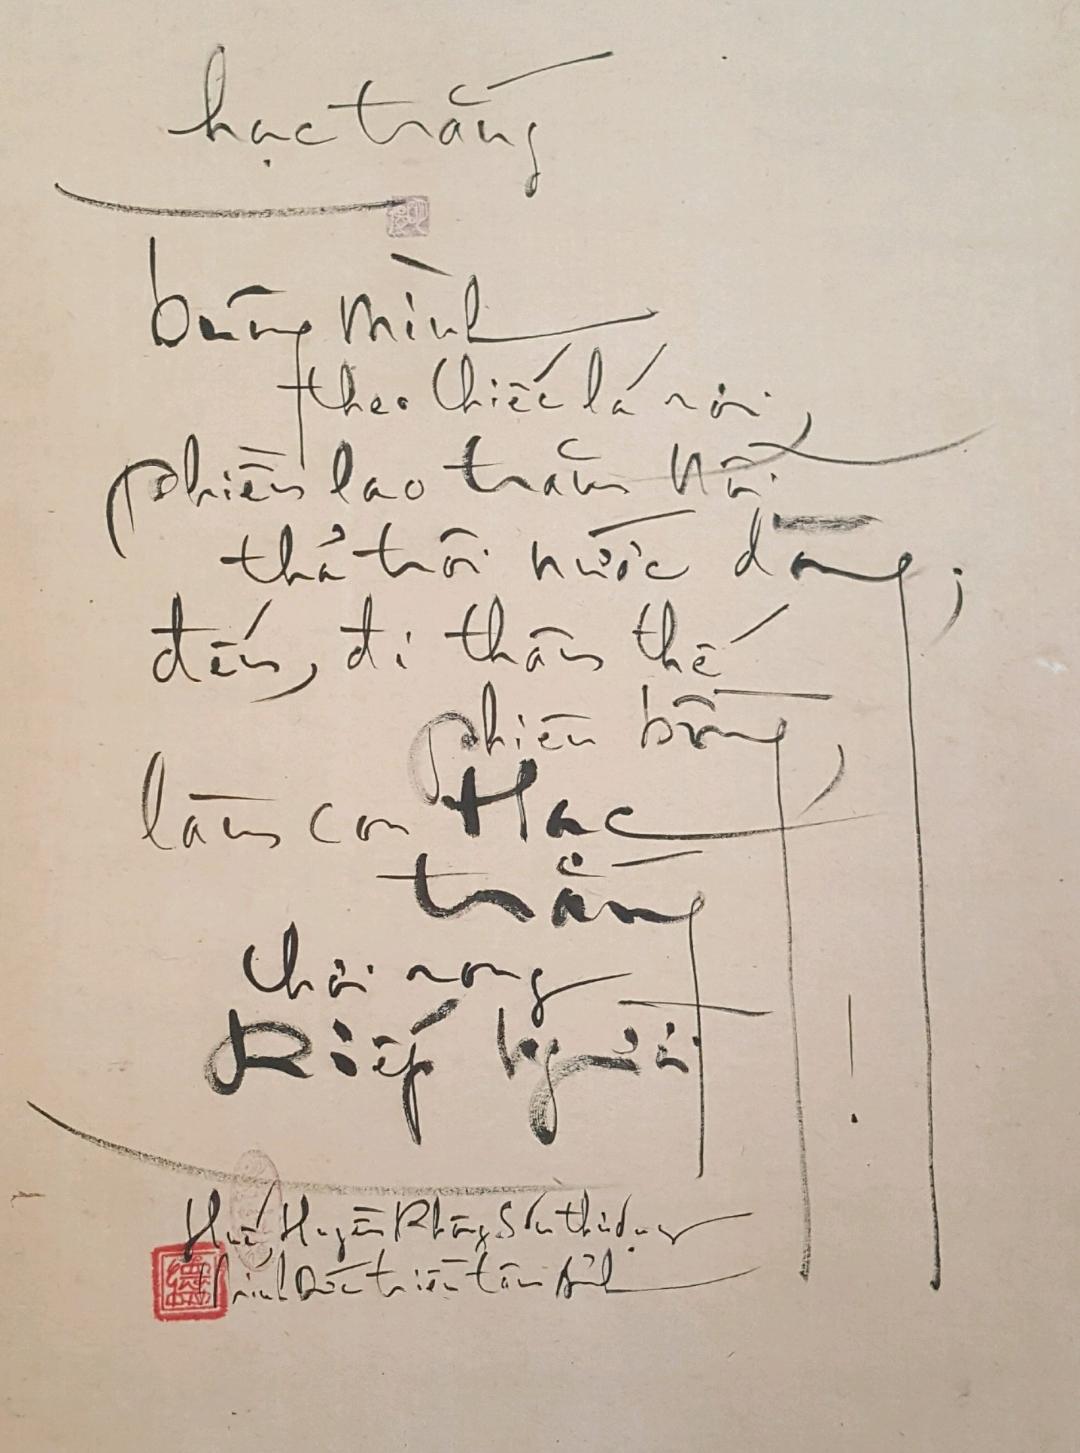 hạc trắng
buông mình
theo chiếc lá rơi,
phiền lao trăm nỗi
thả trôi nước dòng;
đến, đi thân thế
phiêu bồng,
làm con Hạc
trắng
chơi rong
Kiếp người!
Huế, Huyền Không Sơn Thượng
triện tâm ảnh
德